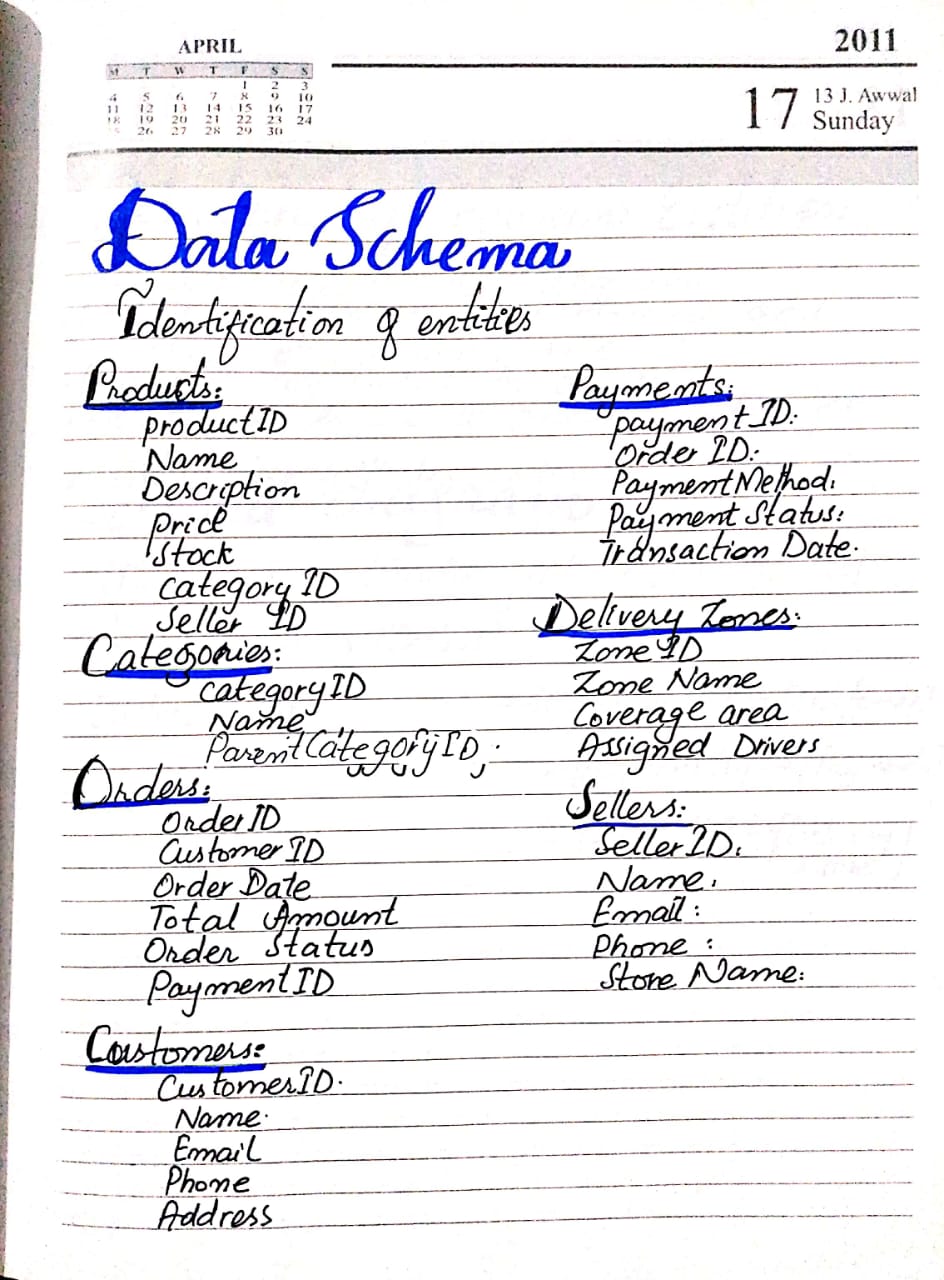 APRIL
M T W T F S S
1 2 3
4 5 6 7 8 9 10
11 12 13 14 15 16 17
18 19 20 21 22 23 24
26 27 28 29 30
2011
17 13 J. Awwal
Sunday
Data Schema
Identification of entities
Products:
productID
Name
Description
Price
Stock
Category ID
Seller ID
Categories:
categoryID
Name
ParentCategoryID.
Orders:
OrderID
CustomerID
Order Date
Total Amount
Order Status
PaymentID
Customers:
CustomerID.
Name.
Email
Phone
Address
Payments:
payment ID:
Order ID:
PaymentMethod.
Payment Status:
Transaction Date.
Delivery Zones:
Zone ID
Zone Name
Coverage area
Assigned Drivers
Sellers:
SellerID.
Name.
Email:
Phone:
Store Name: